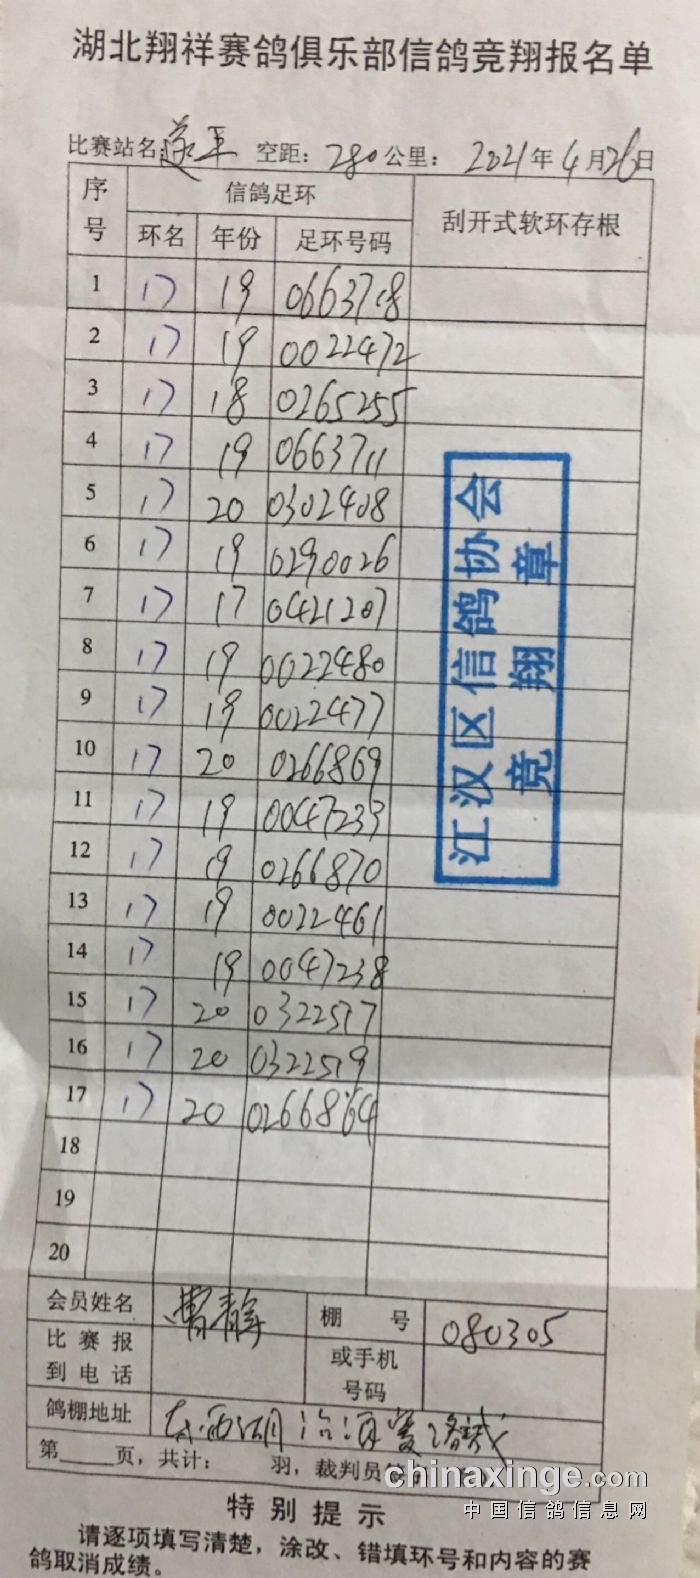 湖北翔祥赛鸽俱乐部信鸽竞翔报名单
比赛站名: 遂平 空距: 280 公里: 2021 年 4 月 26 日
序号 信鸽足环 刮开式软环存根
环名 年份 足环号码
1 17 19 0663718
2 17 19 0022472
3 17 18 0265255
4 17 19 0663711
5 17 20 0302408
6 17 19 0290026
7 17 17 0421207
8 17 19 0022480
9 17 19 0022477
10 17 20 0266869
11 17 19 0047233
12 17 19 0266870
13 17 19 0022461
14 17 19 0047238
15 17 20 0322517
16 17 20 0322519
17 17 20 0266864
18
19
20
江汉区信鸽协会
竞翔章
会员姓名 曹静 棚号 080305
比赛报到电话 或手机号码
鸽棚地址 东西湖
第 页, 共计: 羽, 裁判员
chinaxinge.com
中国信鸽信息网
特别提示
请逐项填写清楚, 涂改、错填环号和内容的赛
鸽取消成绩。